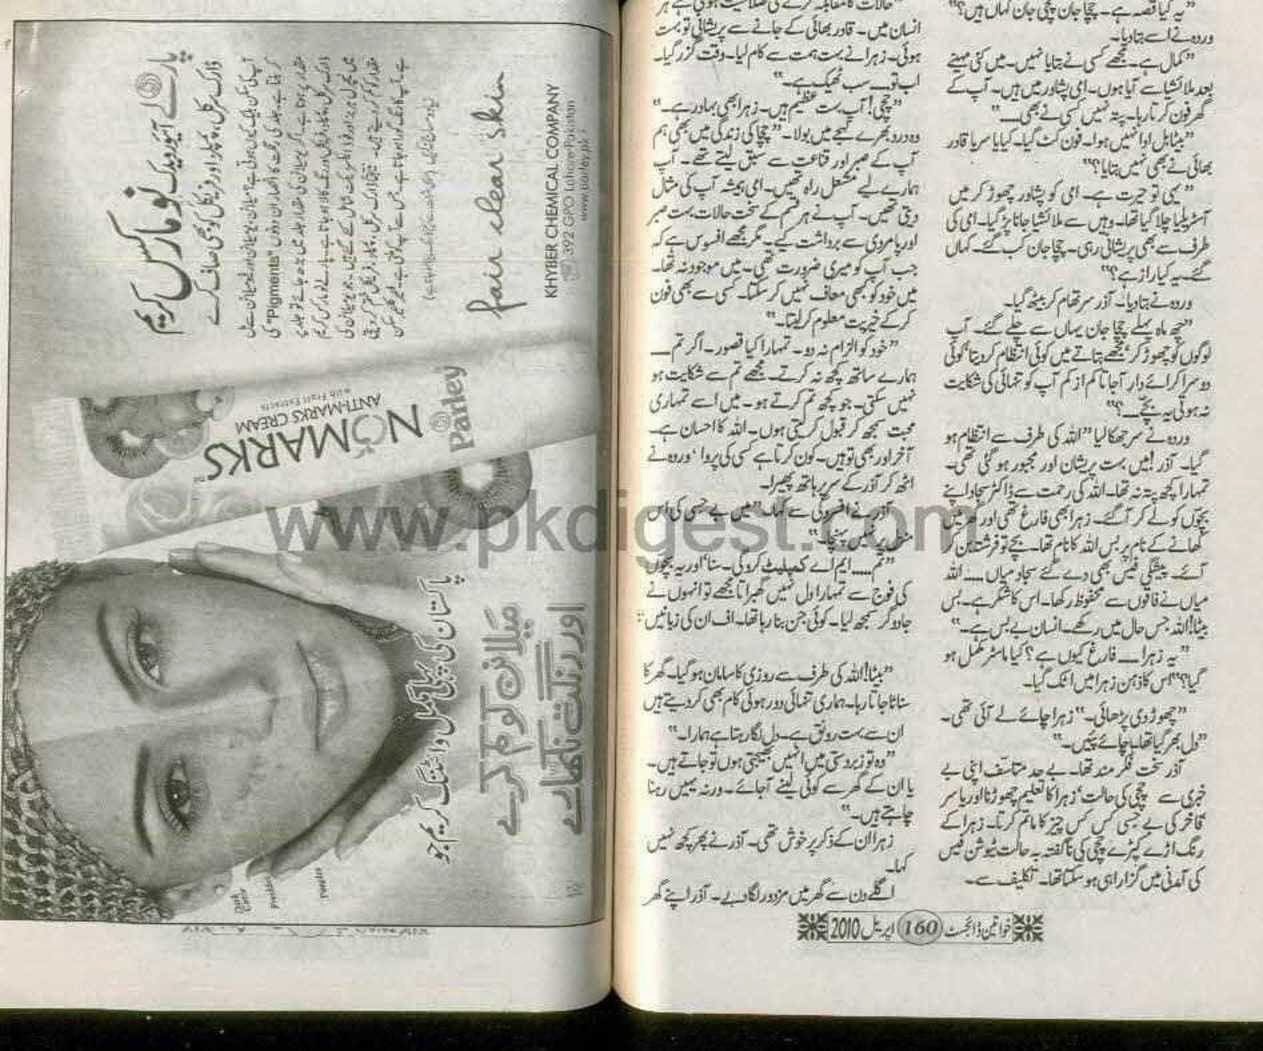 "یہ کیا قصہ ہے۔ چچا جان چچی جان کہاں ہیں؟"
وردہ نے اسے بتا دیا۔
"کمال ہے۔ مجھے کسی نے بتایا نہیں۔ میں کئی مہینے
بعد ملائشا سے آیا ہوں۔ امی پشاور میں ہیں۔ آپ کے
گھر فون کرتا رہا۔ پتہ نہیں کسی نے بھی۔۔۔"
"بیٹا بل ادا نہیں ہوا۔ فون کٹ گیا۔ کیا یا سر یا قادر
بھائی نے بھی نہیں بتایا؟"
"یہی تو حیرت ہے۔ امی کو پشاور چھوڑ کر میں
آسٹریلیا چلا گیا تھا۔ وہیں سے ملائشیا جانا پڑ گیا۔ امی کی
طرف سے بھی پریشانی رہی۔ چچا جان کب گئے۔ کہاں
گئے۔ یہ کیا راز ہے؟"
وردہ نے بتا دیا۔ آذر سر تھام کر بیٹھ گیا۔
"چھ ماہ پہلے چچا جان یہاں سے چلے گئے۔ آپ
لوگوں کو چھوڑ کر مجھے بتاتے میں کوئی انتظام کر دیتا کوئی
دوسرا کرائے دار آ جاتا کم از کم آپ کو تنہائی کی شکایت
نہ ہوتی یہ بچے۔۔۔؟"
وردہ نے سر جھکا لیا "اللہ کی طرف سے انتظام ہو
گیا۔ آذر! میں بہت پریشان اور مجبور ہو گئی تھی۔
تمہارا کچھ پتہ نہ تھا۔ اللہ کی رحمت سے ڈاکٹر سجاد اپنے
بچوں کو لے کر آ گئے۔ زہرا بھی فارغ تھی اور گھر میں
کھانے کے نام پر بس اللہ کا نام تھا۔ بچے تو فرشتہ بن کر
آئے۔ پیشگی فیس بھی دے گئے سجاد میاں۔۔۔ اللہ
میاں نے فاقوں سے محفوظ رکھا۔ اس کا شکر ہے۔ بس
بیٹا! اللہ جس حال میں رکھے۔ انسان بے بس ہے۔"
"یہ زہرا۔۔۔ فارغ کیوں ہے؟ کیا ماسٹر مکمل ہو
گیا؟" اس کا ذہن زہرا میں اٹک گیا۔
"چھوڑ دی پڑھائی۔" زہرا چائے لے آئی تھی۔
"دل بھر گیا تھا۔ یا چائے پئیں۔"
آذر سخت فکر مند تھا۔ بے حد متاسف اپنی بے
خبری سے چچی کی حالت زہرا کا تعلیم چھوڑنا اور یاسر
فاخر کی بے حسی کس کس چیز کا ماتم کرتا۔ زہرا کے
رنگ اڑے کپڑے چچی کی ناگفتہ بہ حالت ٹیوشن فیس
کی آمدنی میں گزارا ہی ہو سکتا تھا۔ تکلیف سے۔
"حالات کا مقابلہ کرنے کی صلاحیت ہوتی ہے ہر
انسان میں۔ قادر بھائی کے جانے سے پریشانی تو بہت
ہوئی۔ زہرا نے بہت ہمت سے کام لیا۔ وقت گزر گیا۔
اب تو۔۔۔ سب ٹھیک ہے۔"
"چچی! آپ بہت عظیم ہیں۔ زہرا بھی بہادر ہے۔"
وہ درد بھرے لہجے میں بولا۔ "چچا کی زندگی میں بھی ہم
آپ کے صبر اور قناعت سے سبق لیتے تھے۔ آپ
ہمارے لیے مشعل راہ تھیں۔ امی ہمیشہ آپ کی مثال
دیتی تھیں۔ آپ نے ہر قسم کے سخت حالات بہت صبر
اور پامردی سے برداشت کیے۔ مگر مجھے افسوس ہے کہ
جب آپ کو میری ضرورت تھی۔ میں موجود نہ تھا۔
میں خود کو کبھی معاف نہیں کر سکتا۔ کسی سے بھی فون
کر کے خیریت معلوم کر لیتا۔"
"خود کو الزام نہ دو۔ تمہارا کیا قصور۔ اگر تم۔۔۔
ہمارے ساتھ کچھ نہ کرتے۔ مجھے تم سے شکایت ہو
نہیں سکتی۔ جو کچھ تم کرتے ہو۔ میں اسے تمہاری
محبت سمجھ کر قبول کرتی ہوں۔ اللہ کا احسان ہے۔
آخر اور بھی تو ہیں۔ کون کرتا ہے کسی کی پروا" وردہ نے
اٹھ کر آذر کے سر پر ہاتھ پھیرا۔
آذر نے افسردگی سے کہا۔ "میں بے حسی کی اس
منزل پر نہیں پہنچا۔"
"تم۔۔۔ ایم اے کمپلیٹ کرو گی۔ سنا اور یہ بچوں
کی فوج سے تمہارا دل نہیں گھبراتا مجھے تو انہوں نے
جادوگر سمجھ لیا۔ کوئی جن بنا رہا تھا۔ اف ان کی زبانیں"
"بیٹا! اللہ کی طرف سے روزی کا سامان ہو گیا۔ گھر کا
سناٹا جاتا رہا۔ ہماری تنہائی دور ہوئی کام بھی کر دیتے ہیں
ان سے بہت رونق ہے۔ دل لگا رہتا ہے ہمارا۔"
"وہ تو زبردستی میں انہیں بھیجتی ہوں تو جاتے ہیں۔
یا ان کے گھر سے کوئی لینے آ جائے۔ ورنہ یہیں رہنا
چاہتے ہیں۔"
زہرا ان کے ذکر پر خوش تھی۔ آذر نے پھر کچھ نہیں
کہا۔
اگلے دن سے گھر میں مزدور لگا دیے۔ آذر اپنے گھر
خواتین ڈائجسٹ 160 اپریل 2010
پارلے آئیورویدک نو مارکس کریم
ڈارک سرکل، پمپلز اور فریکل کو بھی صاف کرے
"Pigments"
fair clear skin
KHYBER CHEMICAL COMPANY
392 GPO Lahore-Pakistan
www.parley.pk
NOMARKS
ANTI-MARKS CREAM
with Fruit Extracts
Parley
پاکستان کی پہلی مکمل وائٹننگ کریم جو
میلانن کو کم کرے
اور رنگت نکھارے
www.pkdigest.com